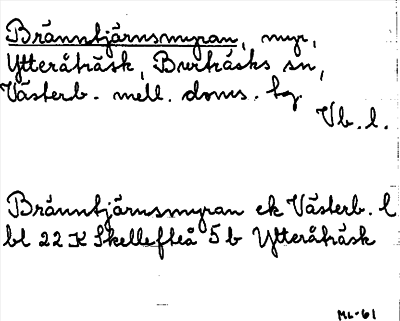 Bränntjärnsmyran, myr,
Ytteråträsk, Burträsks sn,
Västerb. mell. doms. bg.
Vb. l.
Bränntjärnsmyran ek Västerb. l
bl 22 K Skellefteå 5 b Ytteråträsk
ML-61